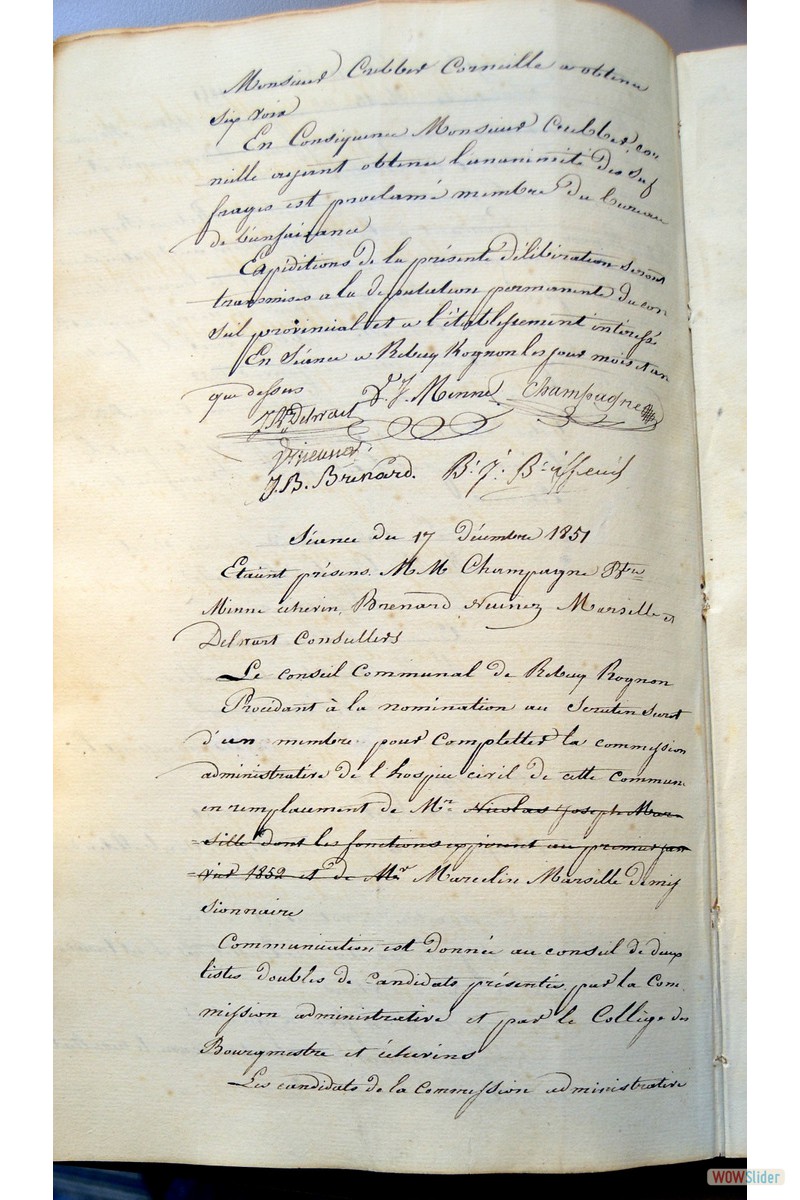 Monsieur Cubber Corneille a obtenu
six voix
En Conséquence Monsieur Cubber, cor
neille ayant obtenu l'unanimité des suf
frages est proclamé membre du bureau
de bienfaisance
Expéditions de la présente délibération seront
transmises a la députation permanente du con
seil provincial et a l'établissement intéressé
En Séance a Rebecq Rognon les jour mois et an
que dessus
J. Bte Delwart D. J. Minne Champagne
J. B. Brenard. B. J.
Séance du 17 décembre 1851
Etaient présens. M M Champagne Bgtre
Minne échevin, Brenard Marsille et
Delwart Consullers
Le conseil Communal de Rebecq Rognon
Procédant à la nomination au Scrutin Secret
d'un membre pour Completter la commission
administrative de l'hospice civil de cette Commune
en remplacement de Mr Nicolas Joseph Mar-
sille dont les fonctions expirent au premier jan
vier 1852 et de Mr Marcelin Marsille démis
sionnaire
Communication est donnée au conseil de deux
listes doubles de candidats présentés par la Com
mission administrative et par le Collège des
Bourgmestre et échevins
Les candidats de la Commission administrative
WOWSlider